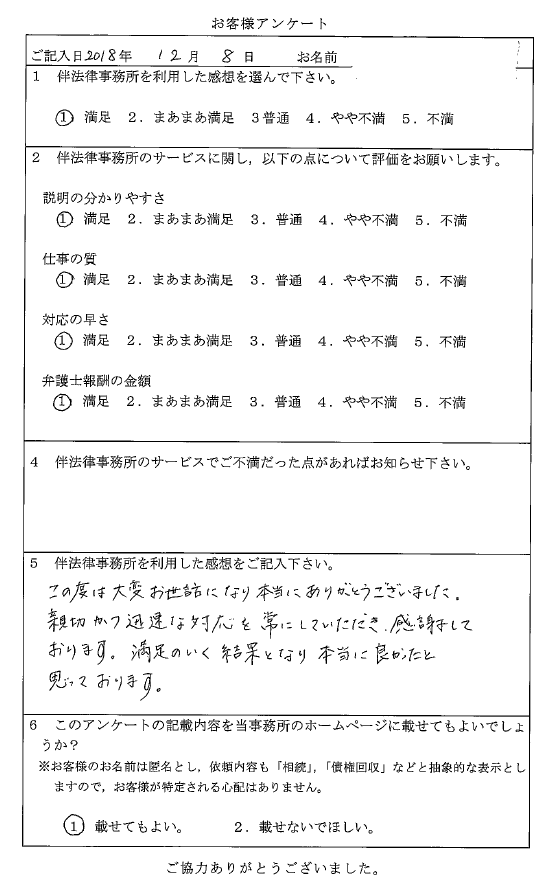 お客様アンケート
ご記入日2018年 12月 8日 お名前
1 伴法律事務所を利用した感想を選んで下さい。
① 満足 2．まあまあ満足 3普通 4．やや不満 5．不満
2 伴法律事務所のサービスに関し，以下の点について評価をお願いします。
説明の分かりやすさ
① 満足 2．まあまあ満足 3．普通 4．やや不満 5．不満
仕事の質
① 満足 2．まあまあ満足 3．普通 4．やや不満 5．不満
対応の早さ
① 満足 2．まあまあ満足 3．普通 4．やや不満 5．不満
弁護士報酬の金額
① 満足 2．まあまあ満足 3．普通 4．やや不満 5．不満
4 伴法律事務所のサービスでご不満だった点があればお知らせ下さい。
5 伴法律事務所を利用した感想をご記入下さい。
この度は大変お世話になり本当にありがとうございました。
親切かつ迅速な対応を常にしていただき、感謝して
おります。満足のいく結果となり本当に良かったと
思っております。
6 このアンケートの記載内容を当事務所のホームページに載せてもよいでしょ
うか？
※お客様のお名前は匿名とし，依頼内容も「相続」，「債権回収」などと抽象的な表示とし
ますので，お客様が特定される心配はありません。
① 載せてもよい。 2．載せないでほしい。
ご協力ありがとうございました。